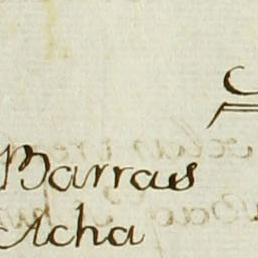 Barras
Acha